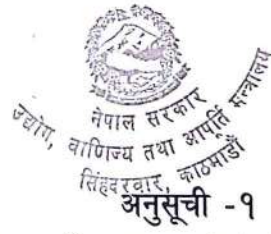 नेपाल सरकार
उद्योग, वाणिज्य तथा आपूर्ति मन्त्रालय
सिंहदरवार, काठमाडौं
अनुसूची -१